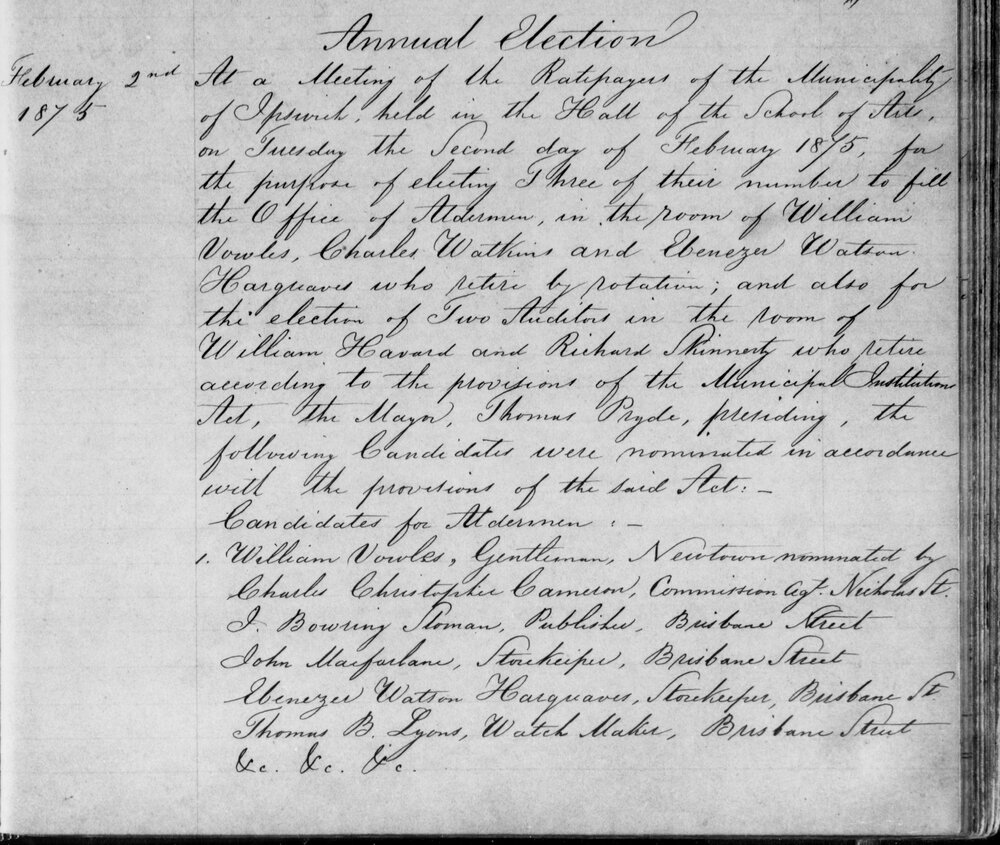 Annual Election
February 2nd
1875
At a Meeting of the Ratepayers of the Municipality
of Ipswich, held in the Hall of the School of Arts,
on Tuesday the Second day of February 1875, for
the purpose of electing Three of their number to fill
the Office of Aldermen, in the room of William
Vowles, Charles Watkins and Ebenezer Watson
Hargreaves who retire by rotation; and also for
the election of Two Auditors in the room of
William Havard and Richard Skinnerty who retire
according to the provisions of the Municipal Institutions
Act, the Mayor, Thomas Pryde, presiding, the
following Candidates were nominated in accordance
with the provisions of the said Act:-
Candidates for Aldermen :-
1. William Vowles, Gentleman, Newtown nominated by
Charles Christopher Cameron, Commission Agt. Nicholas St.
J. Bowring Sloman, Publisher, Brisbane Street
John Macfarlane, Storekeeper, Brisbane Street
Ebenezer Watson Hargreaves, Storekeeper, Brisbane St
Thomas B. Lyons, Watch Maker, Brisbane Street
&c. &c. &c.